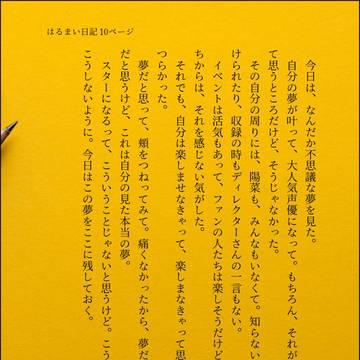 はるまい日記 10ページ
今日は、なんだか不思議な夢を見た。
自分の夢が叶って、大人気声優になって。もちろん、それが
て思うところだけど、そうじゃなかった。
その自分の周りには、陽菜も、みんなもいなくて。知らない
けられたり、収録の時もディレクターさんの一言もない。
イベントは活気もあって、ファンの人たちは楽しそうだけど
ちからは、それを感じない気がした。
それでも、自分は楽しませなきゃって、楽しまなきゃって思
つらかった。
夢だと思って、頬をつねってみて。痛くなかったから、夢だ
だと思うけど、これは自分の見た本当の夢。
スターになるって、こういうことじゃないと思うけど。こう
こうしないように。今日はこの夢をここに残しておく。